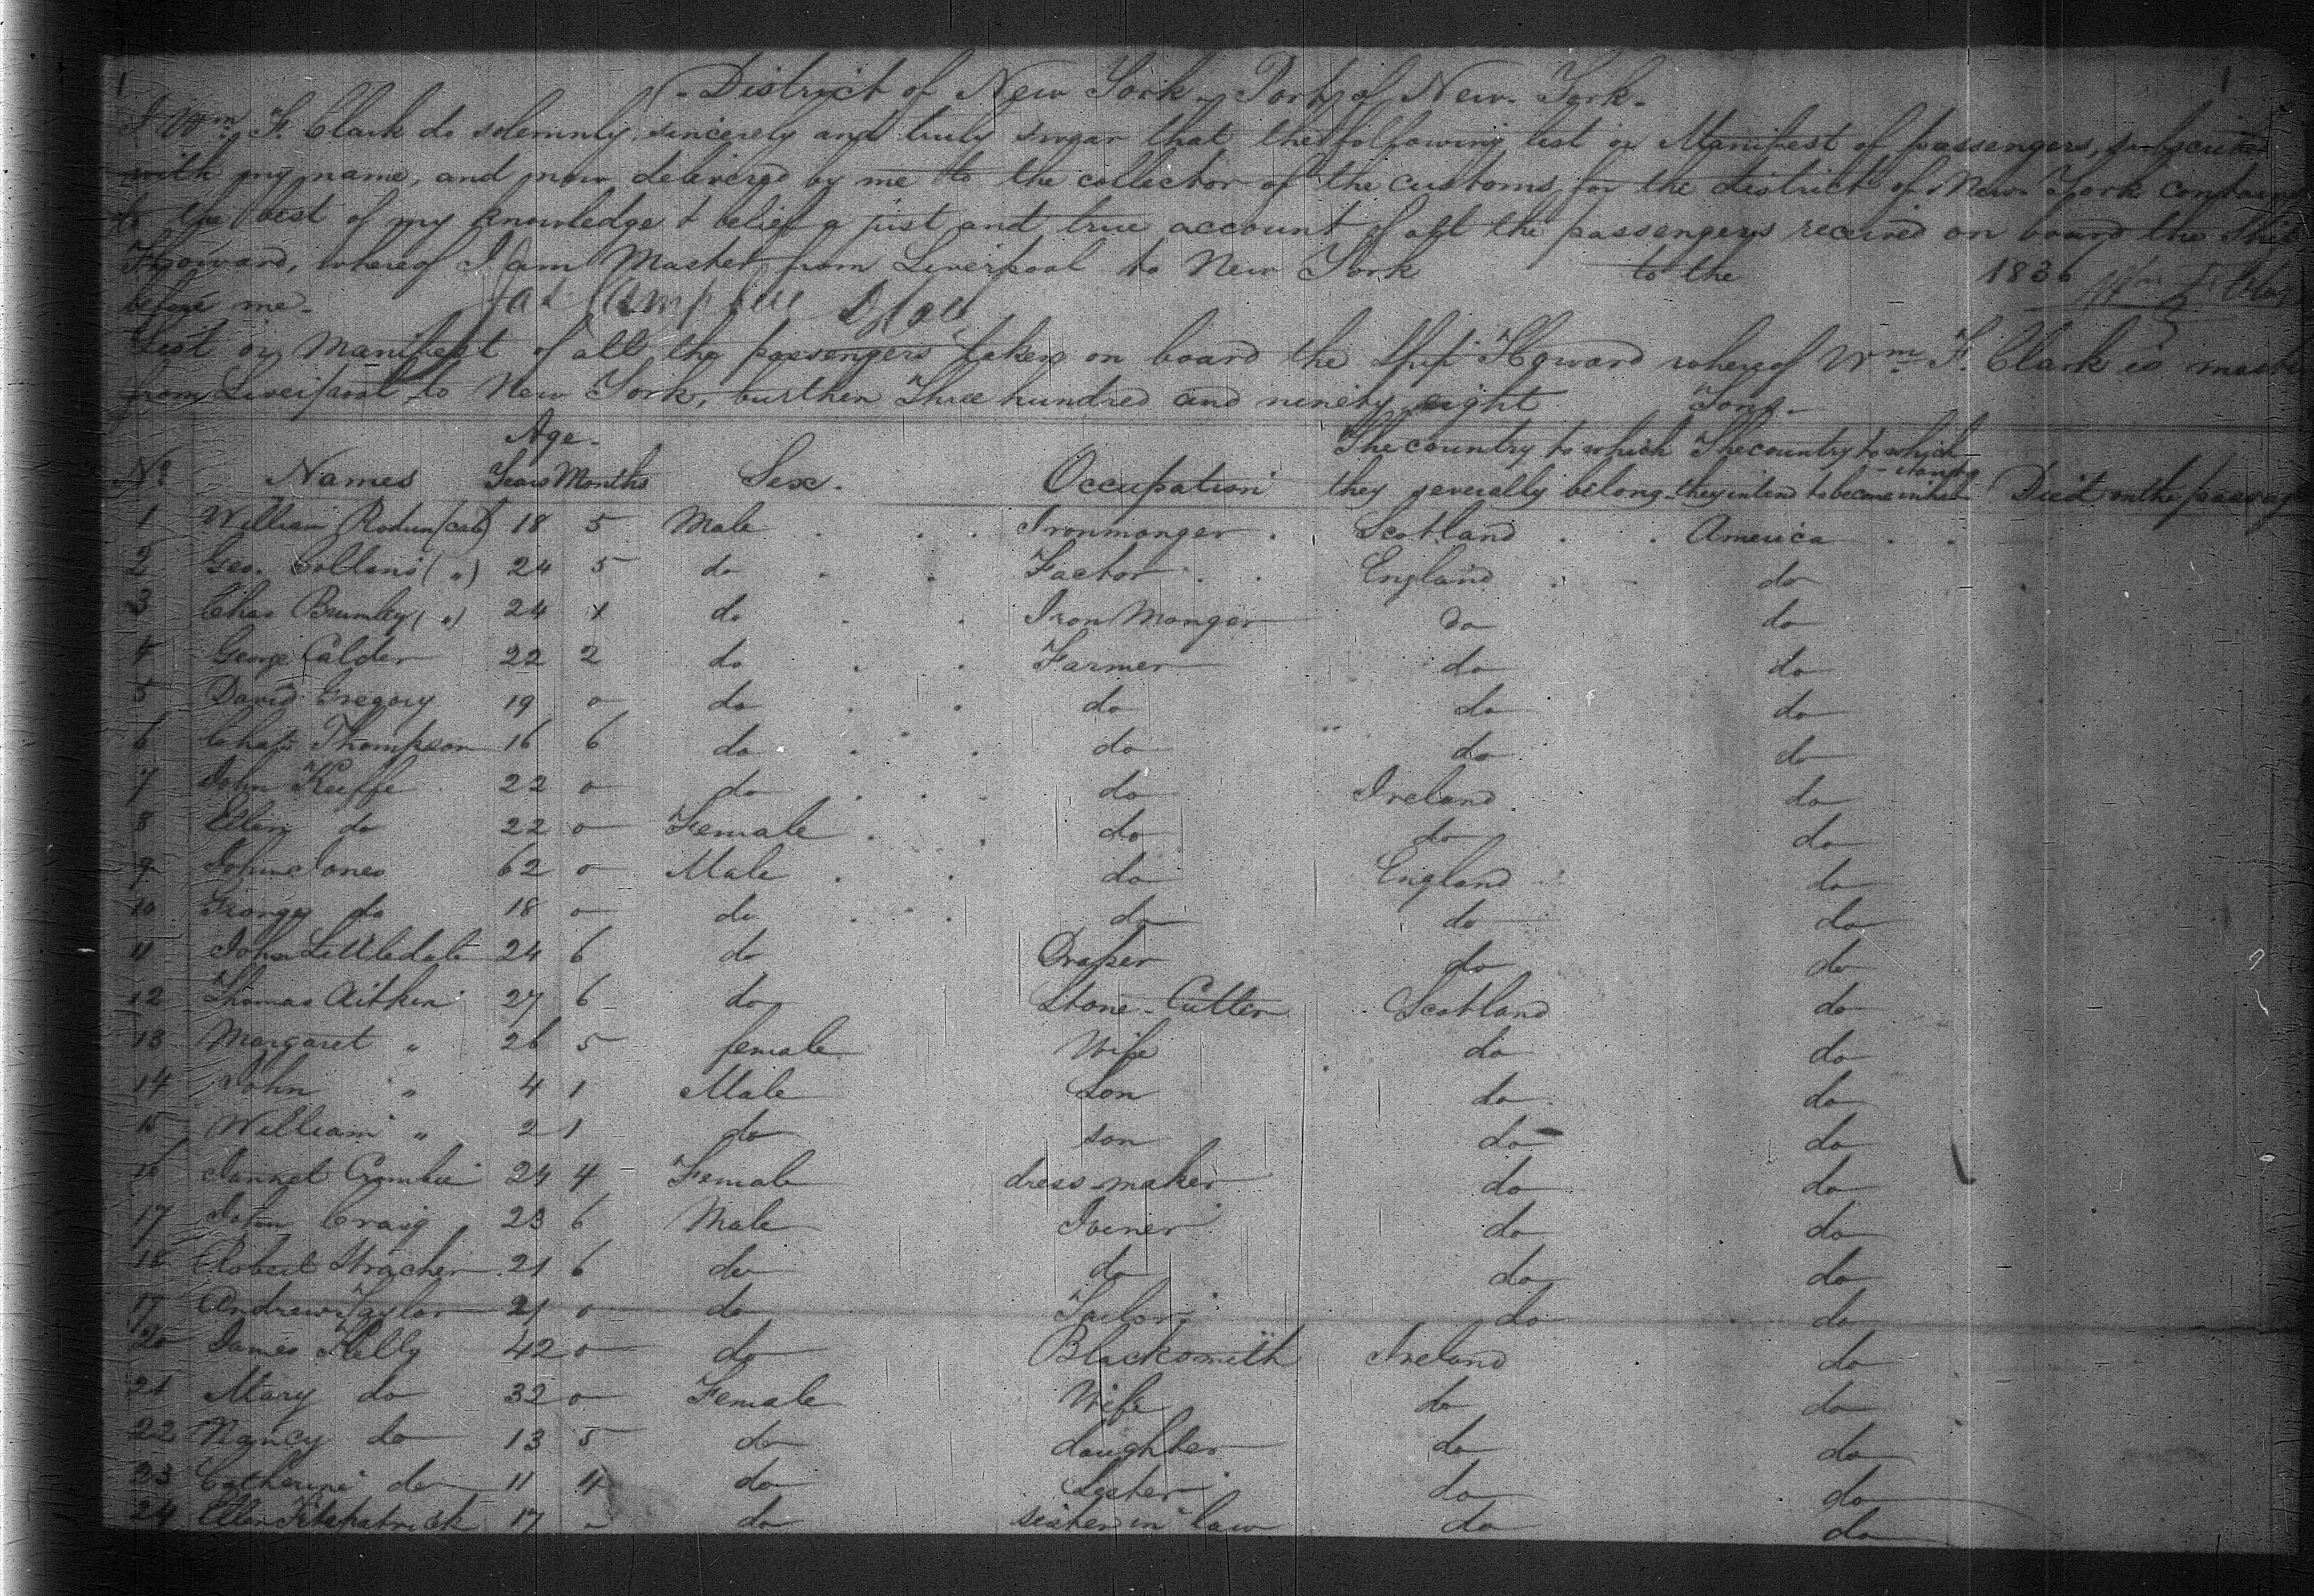 District of New York - Port of New York -
I Wm F. Clark do solemnly, sincerely and truly swear that the following list or Manifest of passengers, subscribed
with my name, and now delivered by me to the collector of the customs for the district of New York contains
to the best of my knowledge & belief a just and true account of all the passengers received on board the Ship
Howard, whereof I am Master from Liverpool to New York to the 1836 Wm F. Clark
before me.
List or Manifest of all the passengers taken on board the Ship Howard whereof Wm F. Clark is master
from Liverpool to New York, burthen Three hundred and ninety eight Tons -
Age - The country to which The country to which
No Names Years Months Sex. Occupation they severally belong - they intend to become inhabitants Died on the passage
1 William (cab) 18 5 Male Ironmonger Scotland America
2 Geo. Collens (") 24 5 do Factor England do
3 Chas Brumley (") 24 1 do Iron Monger do do
4 George Calder 22 2 do Farmer do do
5 David Gregory 19 o do do do do
6 Chas Thompson 16 6 do do do do
7 John Keiffe 22 o do do Ireland do
8 Ellen do 22 o Female do do do
9 John Jones 62 o Male do England do
10 George do 18 o do do do do
11 John Littledale 24 6 do Draper do do
12 Thomas Aitken 27 6 do Stone-Cutter Scotland do
13 Margaret " 26 5 female Wife do do
14 John " 4 1 Male Son do do
15 William " 2 1 do son do do
16 Jannet Crombie 24 4 Female dress-maker do do
17 John Craig 23 6 Male Joiner do do
18 Robert Stracher 21 6 do do do do
19 Andrew Taylor 21 o do Tailor do do
20 James Kelly 42 o do Blacksmith Ireland do
21 Mary do 32 o Female Wife do do
22 Nancy do 13 5 do daughter do do
23 Catherine do 11 4 do Sester do do
24 Ellen Fitzpatrick 17 o do sister in law do do